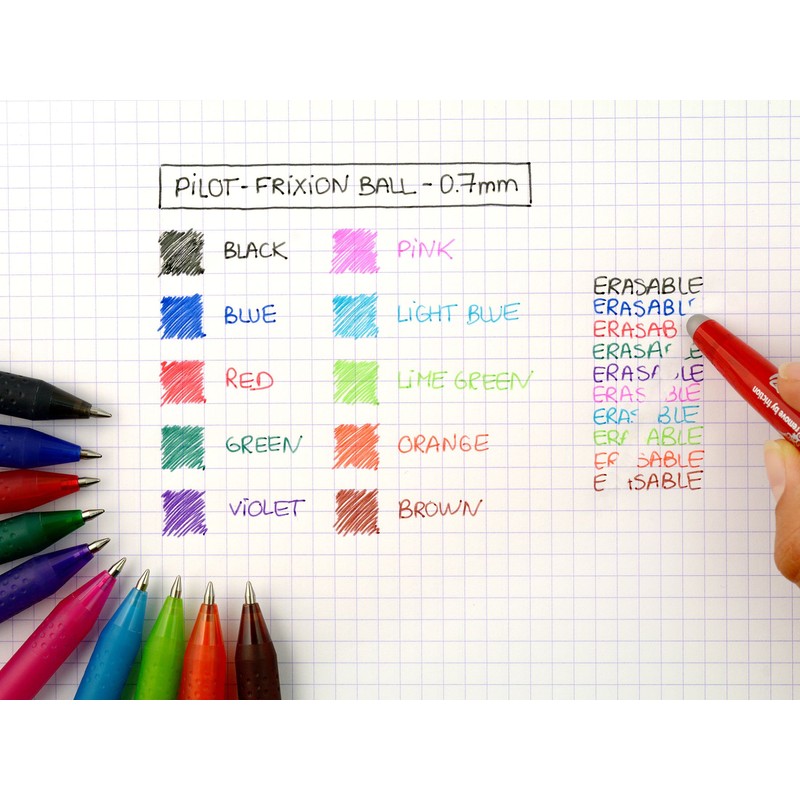 PILOT - FRIXION BALL - 0.7mm
BLACK
BLUE
RED
GREEN
VIOLET
PINK
LIGHT BLUE
LIME GREEN
ORANGE
BROWN
ERASABLE
ERASABL
ERASAB
ERASA
ERAS BLE
ERAS BLE
ERAS BLE
ER ABLE
ER SABLE
E SABLE
remove by friction